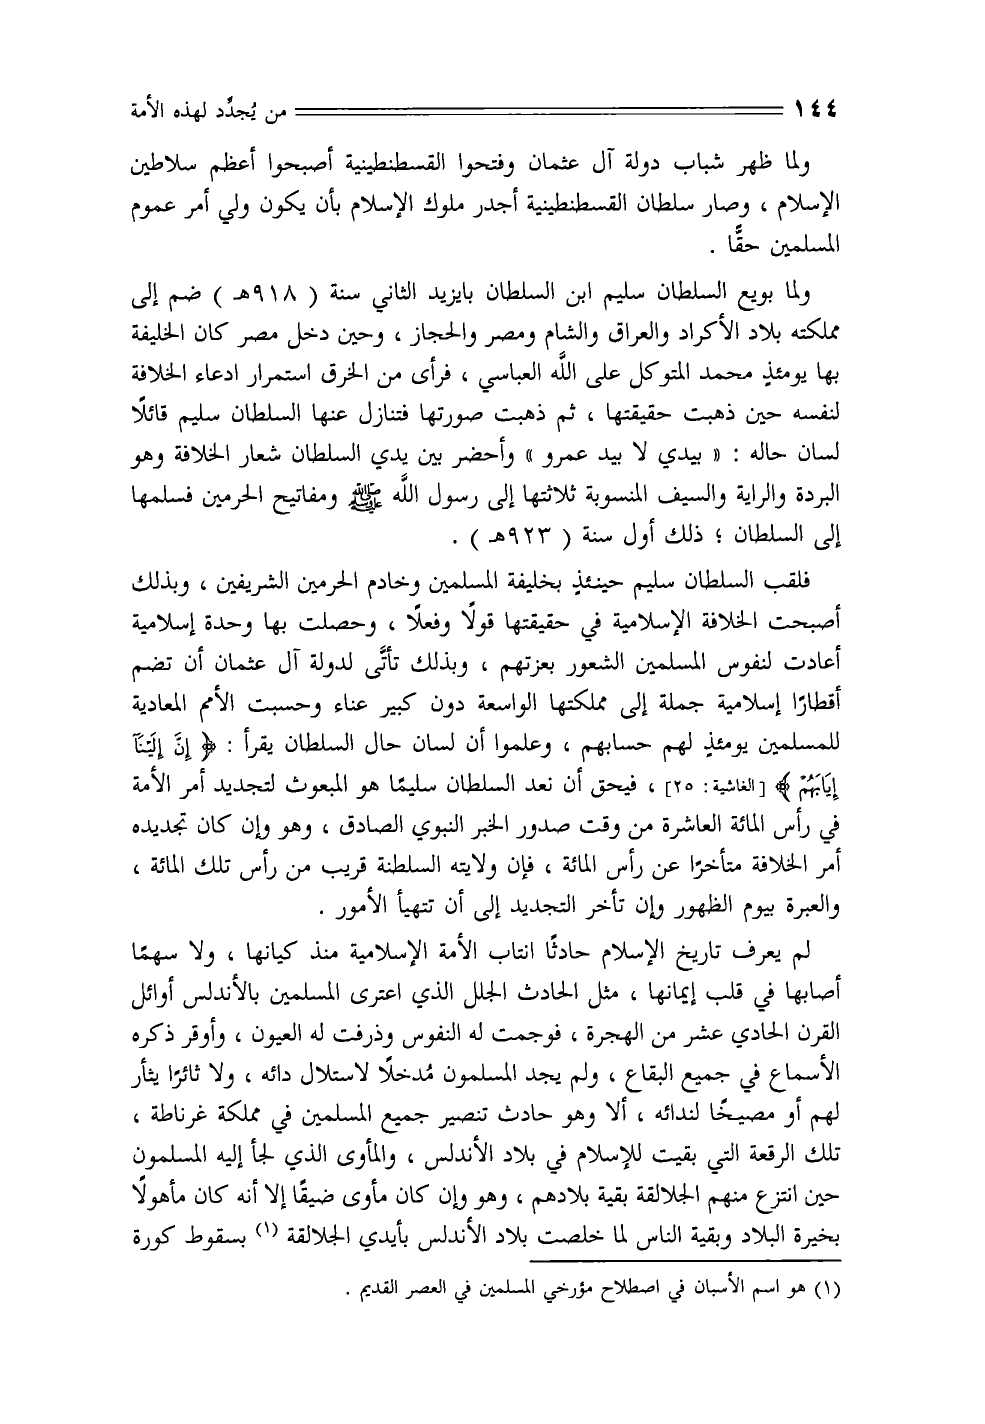 ١٤٤ من يُجدِّد لهذه الأمة
ولما ظهر شباب دولة آل عثمان وفتحوا القسطنطينية أصبحوا أعظم سلاطين
الإسلام ، وصار سلطان القسطنطينية أجدر ملوك الإسلام بأن يكون ولي أمر عموم
المسلمين حقًّا .
ولما بويع السلطان سليم ابن السلطان بايزيد الثاني سنة ( ٩١٨هـ ) ضم إلى
مملكته بلاد الأكراد والعراق والشام ومصر والحجاز ، وحين دخل مصر كان الخليفة
بها يومئذٍ محمد المتوكل على اللَّه العباسي ، فرأى من الخرق استمرار ادعاء الخلافة
لنفسه حين ذهبت حقيقتها ، ثم ذهبت صورتها فتنازل عنها السلطان سليم قائلًا
لسان حاله : « بيدي لا بيد عمرو » وأحضر بين يدي السلطان شعار الخلافة وهو
البردة والراية والسيف المنسوبة ثلاثتها إلى رسول اللَّه ﷺ ومفاتيح الحرمين فسلمها
إلى السلطان ؛ ذلك أول سنة ( ٩٢٣هـ ) .
فلقب السلطان سليم حينئذٍ بخليفة المسلمين وخادم الحرمين الشريفين ، وبذلك
أصبحت الخلافة الإسلامية في حقيقتها قولًا وفعلًا ، وحصلت بها وحدة إسلامية
أعادت لنفوس المسلمين الشعور بعزتهم ، وبذلك تأتَّى لدولة آل عثمان أن تضم
أقطارًا إسلامية جملة إلى مملكتها الواسعة دون كبير عناء وحسبت الأمم المعادية
للمسلمين يومئذٍ لهم حسابهم ، وعلموا أن لسان حال السلطان يقرأ : ﴿ إِنَّ إِلَيْنَآ
إِيَابَهُمْ ﴾ [الغاشية: ٢٥] ، فيحق أن نعد السلطان سليمًا هو المبعوث لتجديد أمر الأمة
في رأس المائة العاشرة من وقت صدور الخبر النبوي الصادق ، وهو وإن كان تجديده
أمر الخلافة متأخرًا عن رأس المائة ، فإن ولايته السلطنة قريب من رأس تلك المائة ،
والعبرة بيوم الظهور وإن تأخر التجديد إلى أن تتهيأ الأمور .
لم يعرف تاريخ الإسلام حادثًا انتاب الأمة الإسلامية منذ كيانها ، ولا سهمًا
أصابها في قلب إيمانها ، مثل الحادث الجلل الذي اعترى المسلمين بالأندلس أوائل
القرن الحادي عشر من الهجرة ، فوجمت له النفوس وذرفت له العيون ، وأوقر ذكره
الأسماع في جميع البقاع ، ولم يجد المسلمون مُدخلًا لاستلال دائه ، ولا ثائرًا يثأر
لهم أو مصيخًا لندائه ، ألا وهو حادث تنصير جميع المسلمين في مملكة غرناطة ،
تلك الرقعة التي بقيت للإسلام في بلاد الأندلس ، والمأوى الذي لجأ إليه المسلمون
حين انتزع منهم الجلالقة بقية بلادهم ، وهو وإن كان مأوى ضيقًا إلا أنه كان مأهولًا
بخيرة البلاد وبقية الناس لما خلصت بلاد الأندلس بأيدي الجلالقة (١) بسقوط كورة
(١) هو اسم الأسبان في اصطلاح مؤرخي المسلمين في العصر القديم .